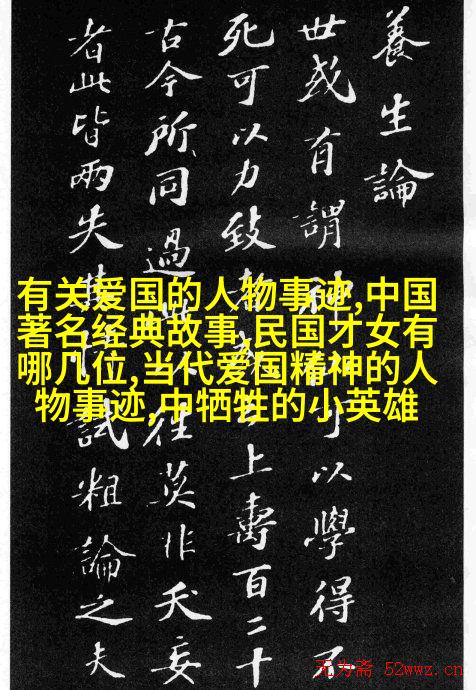 養生論
世或有謂神可以學得不
死可以力致上壽百二十
古今所同過往莫非夭妄
者此皆兩失試粗論之夫
有关爱国的人物事迹,中国
著名经典故事,民国才女有
哪几位,当代爱国精神的人
物事迹,中牺牲的小英雄
无为斋 52wwz.cn